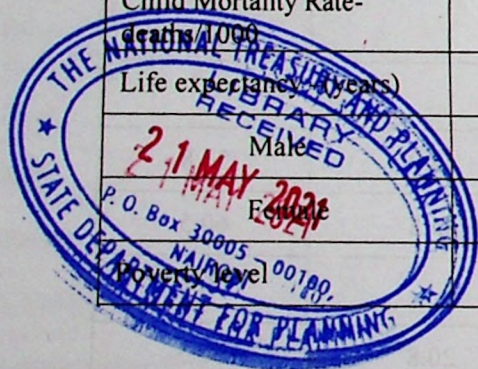 Child Mortality Rate-
deaths/1000
Life expectancy (years)
Male
Female
Poverty level
THE NATIONAL TREASURY AND PLANNING
LIBRARY
RECEIVED
21 MAY 2021
P. O. Box 30005 - 00100,
NAIROBI
STATE DEPARTMENT FOR PLANNING